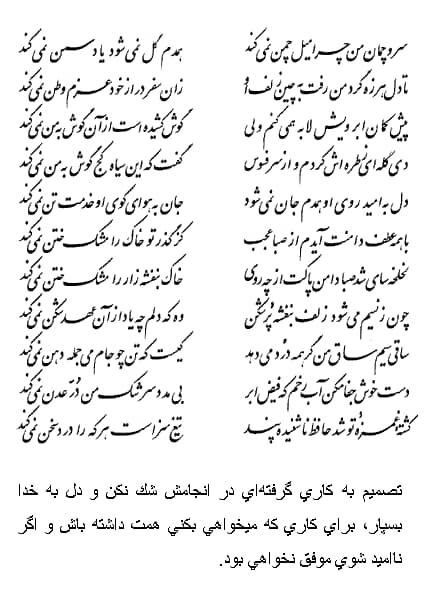 سرو چمان من چرا میل چمن نمی‌کند همدم گل نمی‌شود یاد سمن نمی‌کند
تا دل هرزه گرد من رفت به چین زلف او زان سفر دراز خود عزم وطن نمی‌کند
پیش کمان ابرویش لابه همی کنم ولی گوش کشیده است از آن گوش به من نمی‌کند
دی گله‌ای ز طره‌اش کردم و از سر فسوس گفت که این سیاه کج گوش به من نمی‌کند
دل به امید روی او همدم جان نمی‌شود جان به هوای کوی او خدمت تن نمی‌کند
با همه عطف دامنت آیدم از صبا عجب کز گذر تو خاک را مشک ختن نمی‌کند
لخلخه سای شد صبا دامن پاکت از چه روی خاک بنفشه زار را مشک ختن نمی‌کند
چون ز نسیم می‌شود زلف بنفشه پرشکن وه که دلم چه یاد از آن عهد شکن نمی‌کند
ساقی سیم ساق من گر همه درد می‌دهد کیست که تن چو جام می جمله دهن نمی‌کند
دست خوش جفا مکن آب رخم که فیض ابر بی مدد سرشک من دُرّ عدن نمی‌کند
کشته غمزهٔ تو شد حافظ ناشنیده پند تیغ سزاست هر که را درد سخن نمی‌کند
تصميم به كاري گرفته‌اي در انجامش شك نكن و دل به خدا
بسپار، براي كاري كه ميخواهي بكني همت داشته باش و اگر
نااميد شوي موفق نخواهي بود.